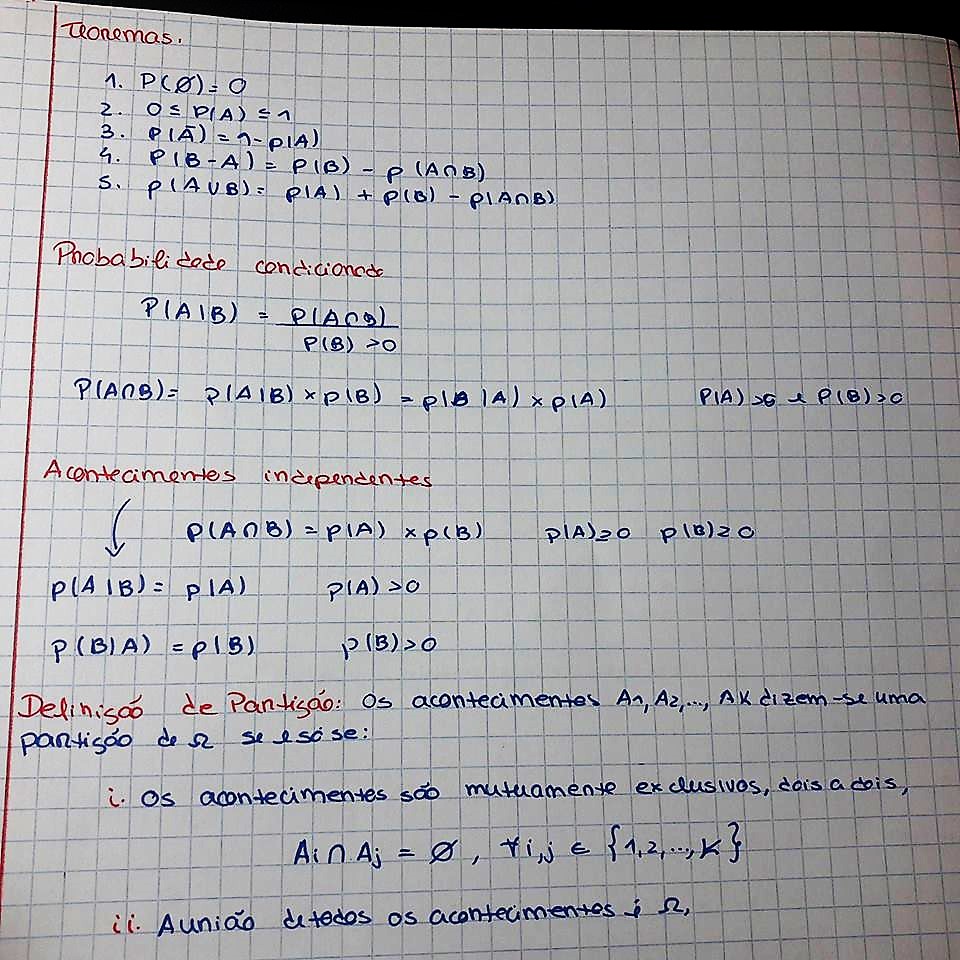 Teoremas.
1. P(Ø) = 0
2. 0 ≤ P(A) ≤ 1
3. P(Ā) = 1 - P(A)
4. P(B - A) = P(B) - P(A∩B)
5. P(A∪B) = P(A) + P(B) - P(A∩B)
Probabilidade condicionada
P(A|B) = P(A∩B)
P(B) > 0
P(A∩B) = P(A|B) × P(B) = P(B|A) × P(A) P(A) > 0 e P(B) > 0
Acontecimentos independentes
P(A∩B) = P(A) × P(B) P(A) ≥ 0 P(B) ≥ 0
P(A|B) = P(A) P(A) > 0
P(B|A) = P(B) P(B) > 0
Definição de Partição: Os acontecimentes A1, A2, ..., AK dizem-se uma
partição de Ω se e só se:
i. Os acontecimentes são mutuamente exclusivos, dois a dois,
Ai ∩ Aj = Ø, ∀i,j ∈ {1,2,...,K}
ii. A união de todos os acontecimentes é Ω,